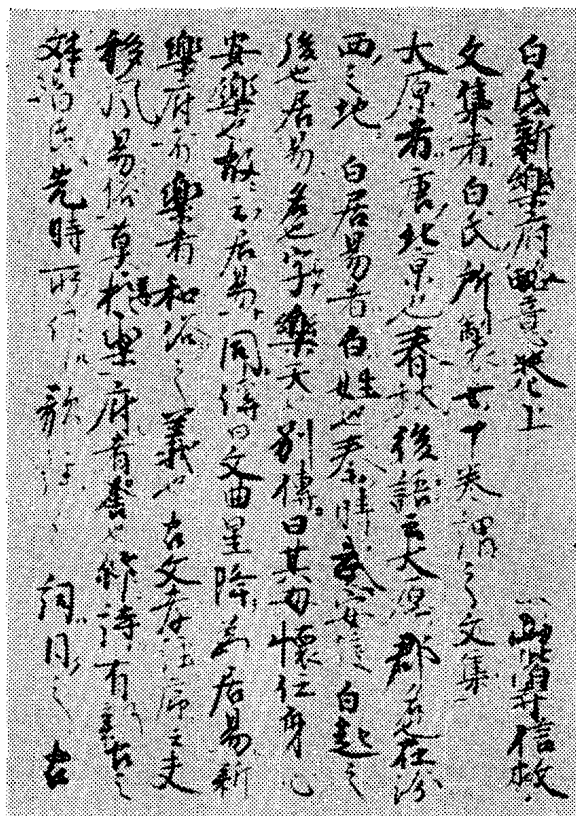 白氏新樂府略意卷上 醍醐寺信救
文集者白氏所製七十卷謂之文集
大原者唐北京也春秋後語云大原郡名在汾
西之地 白居易者白姓也秦時武安侯白起之
後也居易名也字樂天別傳曰其母懷任身心
安樂 故云居易同傳曰文曲星降為居易新
樂府者樂者和俗之義也古文孝經序云夫
移風易俗莫 樂府者 也作詩有 古之
治民先時所作 歌 詞 之古